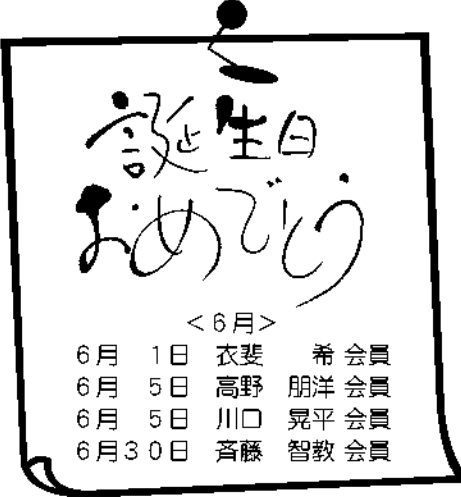 誕生日
おめでとう
<6月>
6月 1日 衣斐 希 会員
6月 5日 高野 朋洋 会員
6月 5日 川口 晃平 会員
6月30日 斉藤 智教 会員